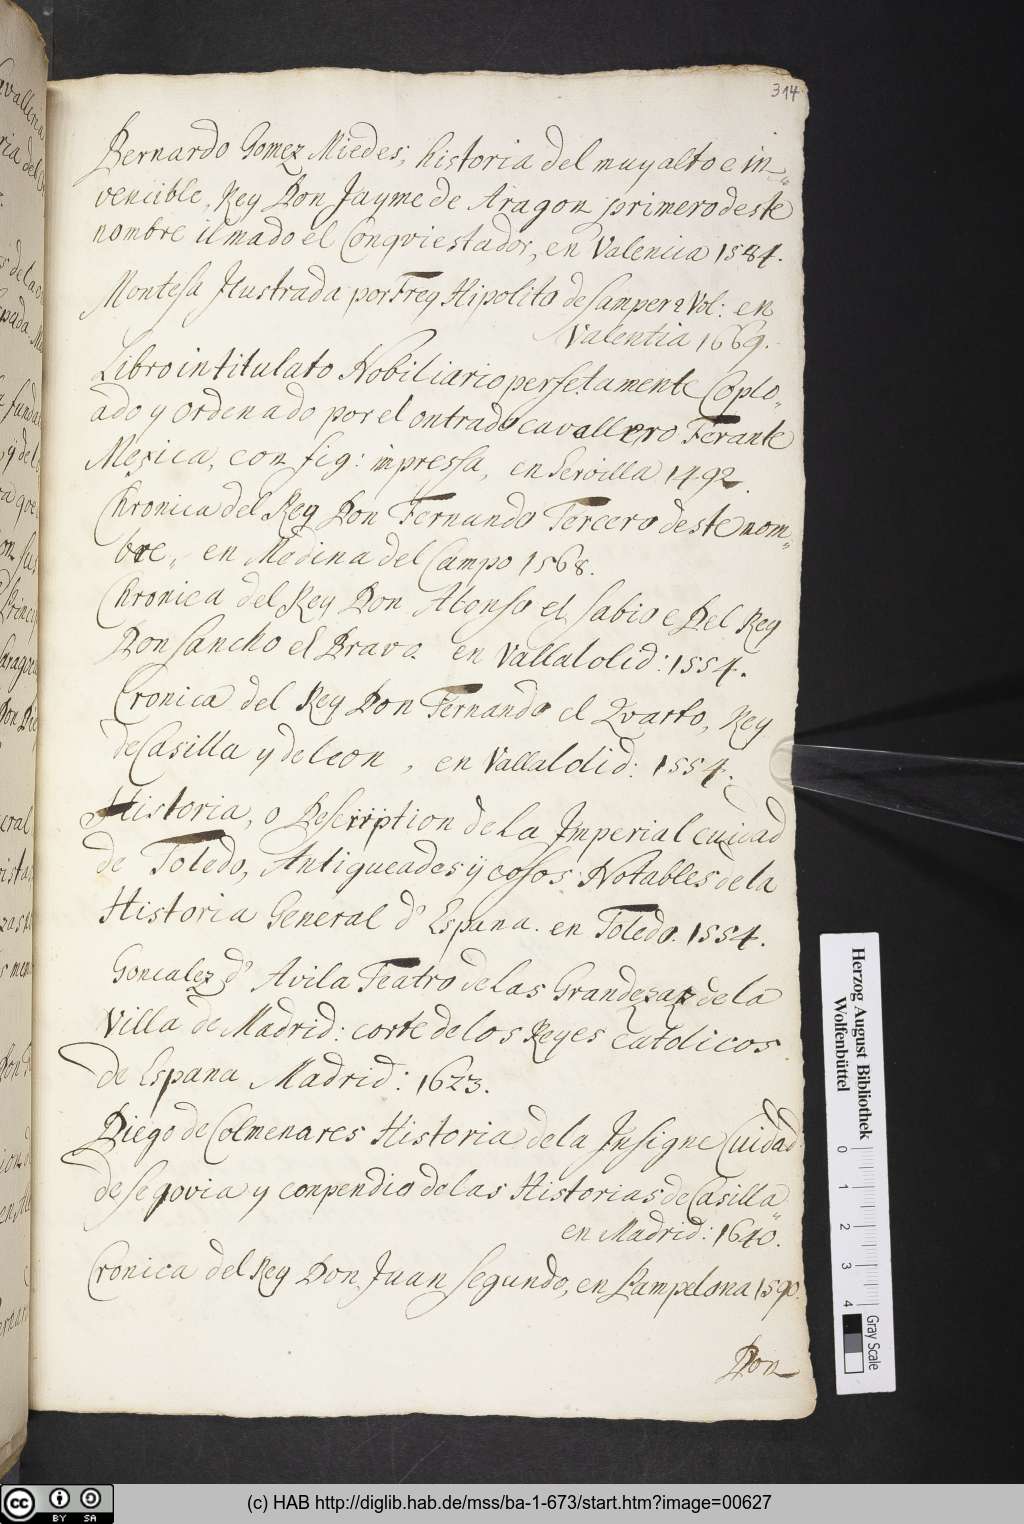 314
Bernardo Gomez Miedes; historia del muy alto e in
vencible, Rey Don Jayme de Aragon primero deste
nombre ilmado el Conqviestador, en Valencia 1584.
Montesa Ilustrada por Frey Hipolito de Samper 2 Vol: en
Valentia 1669.
Libro intitulato Nobiliario persetamente Coplo„
ado y ordenado por el ontrado cavallero Ferante
Mexica, con fig: impressa, en Sevilla 1492.
Chronica del Rey Don Fernando Tercero deste nom„
bre„ en Medina del Campo 1568.
Chronica del Rey Don Alonso el sabio e Del Rey
Don Sancho el Bravo. en Vallalolid: 1554.
Cronica del Rey Don Fernando el Qvarto, Rey
de Casilla y de leon, en Vallalolid: 1554.
Historia, o Descriiption de la Imperial cuicad
de Toledo, Antigueades ÿ cosos Notables de la
Historia General d' Espana. en Toledo. 1554.
Goncalez d' Avila Teatro de las Grandezaz de la
Villa de Madrid: corte de los Reyes catolicos
de Espana Madrid: 1623.
Diego de Colmenares Historia de la Insigne Cuidad
de segovia y conpendio de las Historias de Casilla
en Madrid: 1640.
Cronica del Rey Don Juan segundo, en Pampelona 1590.
Don
Herzog August Bibliothek
Wolfenbüttel
0 1 2 3 4
Gray Scale
cc BY SA
(c) HAB http://diglib.hab.de/mss/ba-1-673/start.htm?image=00627